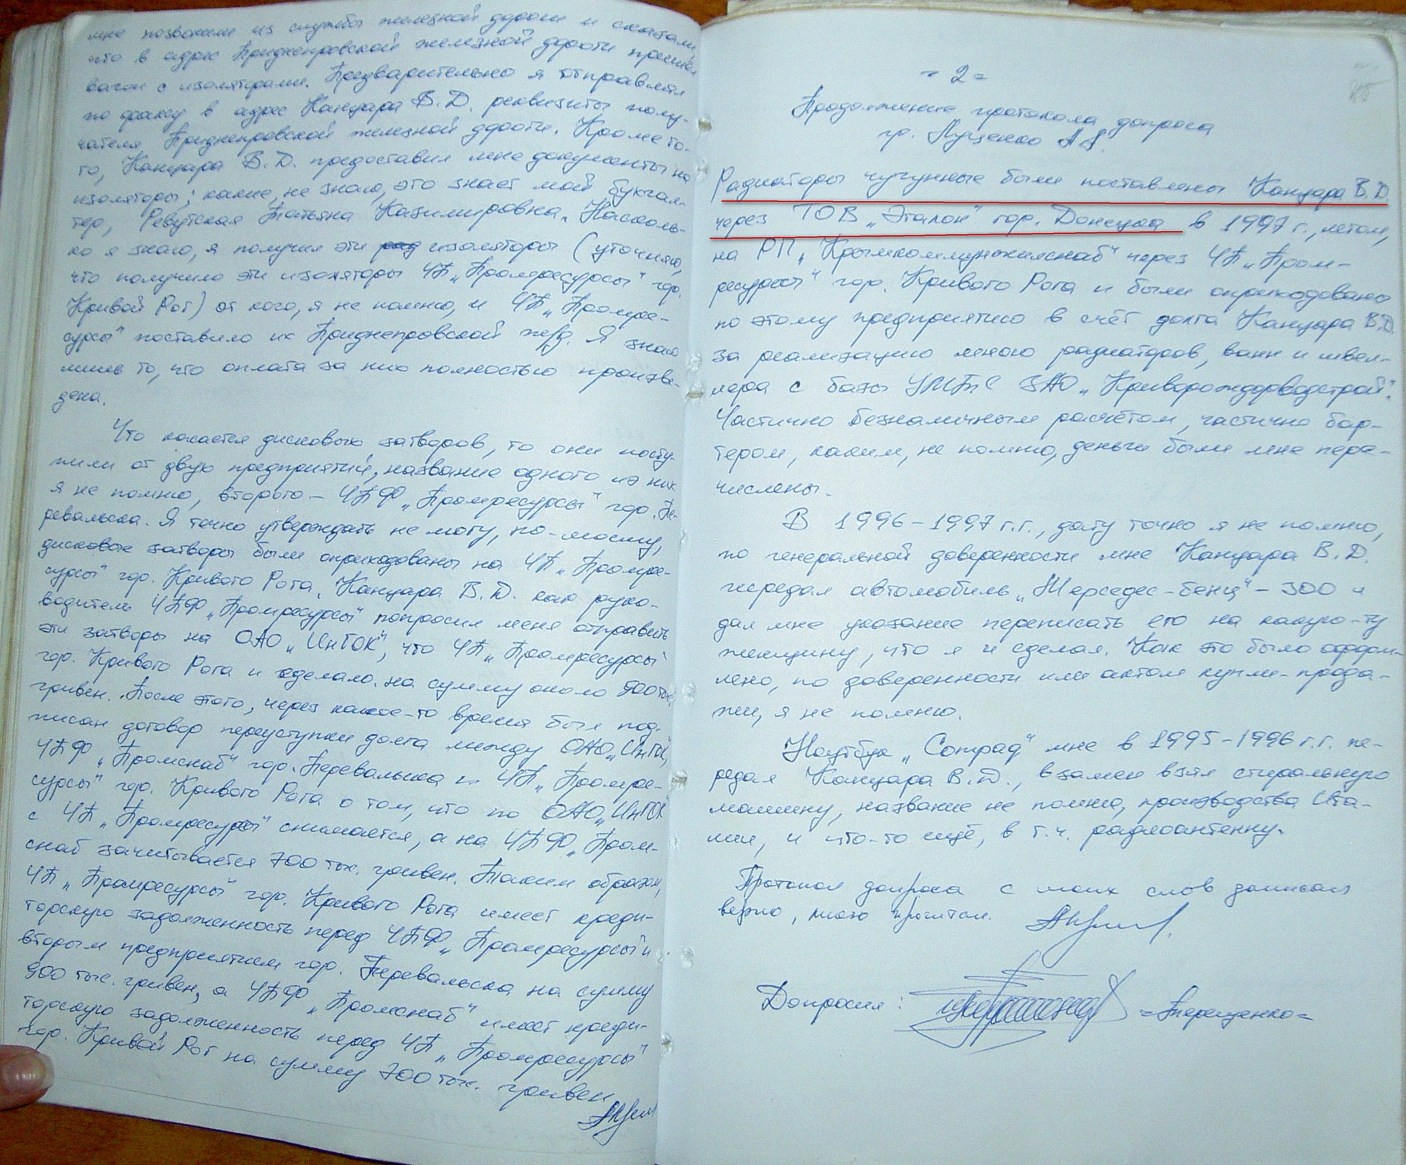 мне позвонили из службы железной дороги и сказали,
что в адрес Приднепровской железной дороги пришел
вагон с изоляторами. Предварительно я отправлял
по факсу в адрес Канцара В.Д. реквизиты полу-
чателя Приднепровской железной дороги. Кроме то-
го, Канцара В.Д. предоставил мне документы на
изоляторы; какие, не знаю, это знает мой бухгал-
тер, Ревутская Татьяна Казимировна. Насколь-
ко я знаю, я получил эти изоляторы (уточняю,
что получило эти изоляторы ЧП „Промресурсы" гор.
Кривой Рог) от кого, я не помню, и ЧП „Промре-
сурсы" поставило их Приднепровской ж/д. Я знаю
лишь то, что оплата за них полностью произве-
дена.
Что касается дисковых затворов, то они посту-
пили от двух предприятий, название одного из них
я не помню, второго – ЧПФ „Промресурсы" гор. Пе-
ревальска. Я точно утверждать не могу, по-моему,
дисковые затворы были оприходованы на ЧП „Промре-
сурсы" гор. Кривого Рога. Канцара В.Д. как руко-
водитель ЧПФ „Промресурсы" попросил меня отправить
эти затворы на ОАО „ИнГОК", что ЧП „Промресурсы"
гор. Кривого Рога и сделало на сумму около 900 тыс.
гривен. После этого, через какое-то время был под-
писан договор переуступки долга между ОАО „ИнГОК",
ЧПФ „Промснаб" гор. Перевальска и ЧП „Промре-
сурсы" гор. Кривого Рога о том, что по ОАО „ИнГОК"
с ЧП „Промресурсы" снимается, а на ЧПФ „Пром-
снаб" зачитывается 700 тыс. гривен. Таким образом,
ЧП „Промресурсы" гор. Кривого Рога имеет креди-
торскую задолженность перед ЧПФ „Промресурсы" и
вторым предприятием гор. Перевальска на сумму
900 тыс. гривен, а ЧПФ „Промснаб" имеет креди-
торскую задолженность перед ЧП „Промресурсы"
гор. Кривой Рог на сумму 700 тыс. гривен
= 2 =
Продолжение протокола допроса
гр. Луценко А.А.
Радиаторы чугунные были поставлены Канцара В.Д.
через ТОВ „Эталон" гор. Донецка в 1997 г., летом,
на РП „Крымкоммунжилснаб" через ЧП „Пром-
ресурсы" гор. Кривого Рога и были оприходованы
по этому предприятию в счёт долга Канцара В.Д.
за реализацию мною радиаторов, ванн и швел-
лера с базы УМТС ЗАО „Криворождорводстрой".
Частично безналичным расчётом, частично бар-
тером, каким, не помню, деньги были мне пере-
числены.
В 1996-1997 г.г., дату точно я не помню,
по генеральной доверенности мне Канцара В.Д.
передал автомобиль „Мерседес-бенц" – 300 и
дал мне указание переписать его на какую-ту
женщину, что я и сделал. Как это было оформ-
лено, по доверенности или актом купли-прода-
жи, я не помню.
Ноутбук „Compaq" мне в 1995-1996 г.г. пе-
редал Канцара В.Д., взамен взял стиральную
машину, название не помню, производства Ита-
лии, и что-то ещё, в т.ч. радиоантенну.
Протокол допроса с моих слов записан
верно, мною прочитан.
Допросил: =Терещенко=